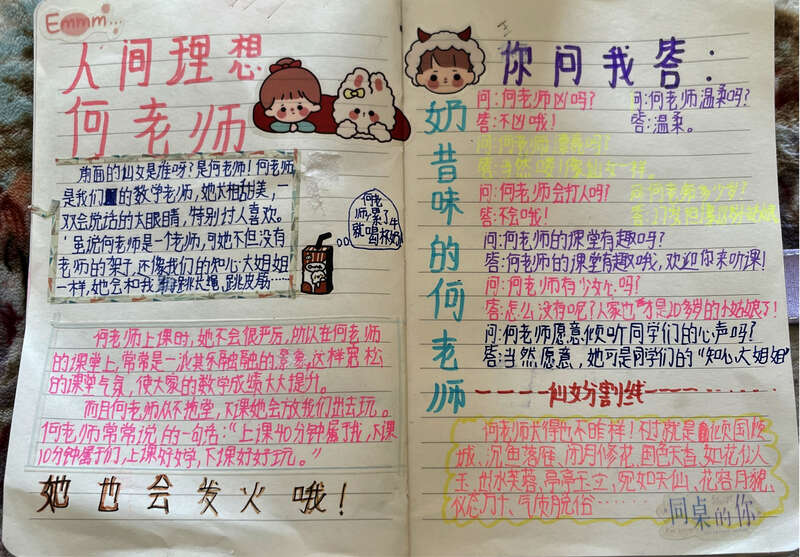 Emmm...
人间理想
何老师
前面的仙女是谁呀?是何老师!何老师
是我们的数学老师,她大相甜美,一
双会说话的大眼睛,特别讨人喜欢。
虽说何老师是一个老师,可她不但没有
老师的架子,还像我们的知心大姐姐
一样,她会和我们跳长绳,跳皮筋……
何老
师,累了
就喝杯奶
何老师上课时,她不会很严厉,所以在何老师
的课堂上,常常是一派其乐融融的景象,这样宽松
的课堂气氛,使大家的数学成绩大大提升。
而且何老师从不拖堂,下课她会放我们出去玩。
何老师常常说的一句话:“上课40分钟属于我,下课
10分钟属于们,上课好好学,下课好好玩。”
她也会发火哦!
你问我答:
奶昔味的何老师
问:何老师凶吗?
答:不凶哦!
问:何老师温柔吗?
答:温柔。
问:何老师漂亮吗?
答:当然喽!像仙女一样。
问:何老师会打人吗?
答:不会哦!
问:何老师多少岁?
问:何老师的课堂有趣吗?
答:何老师的课堂有趣哦,欢迎你来听课!
问:何老师有少女心吗?
答:怎么没有呢?人家也才是20多岁的小姑娘了!
问:何老师愿意倾听同学们的心声吗?
答:当然愿意,她可是同学们的“知心大姐姐”
仙女分割线
何老师长得也不咋样!不过就是倾国倾
城、沉鱼落雁、闭月修花、国色天香、如花似人
玉、出水芙蓉、亭亭玉立、宛如天仙、花容月貌、
仪态万千、气质脱俗……
同桌的你